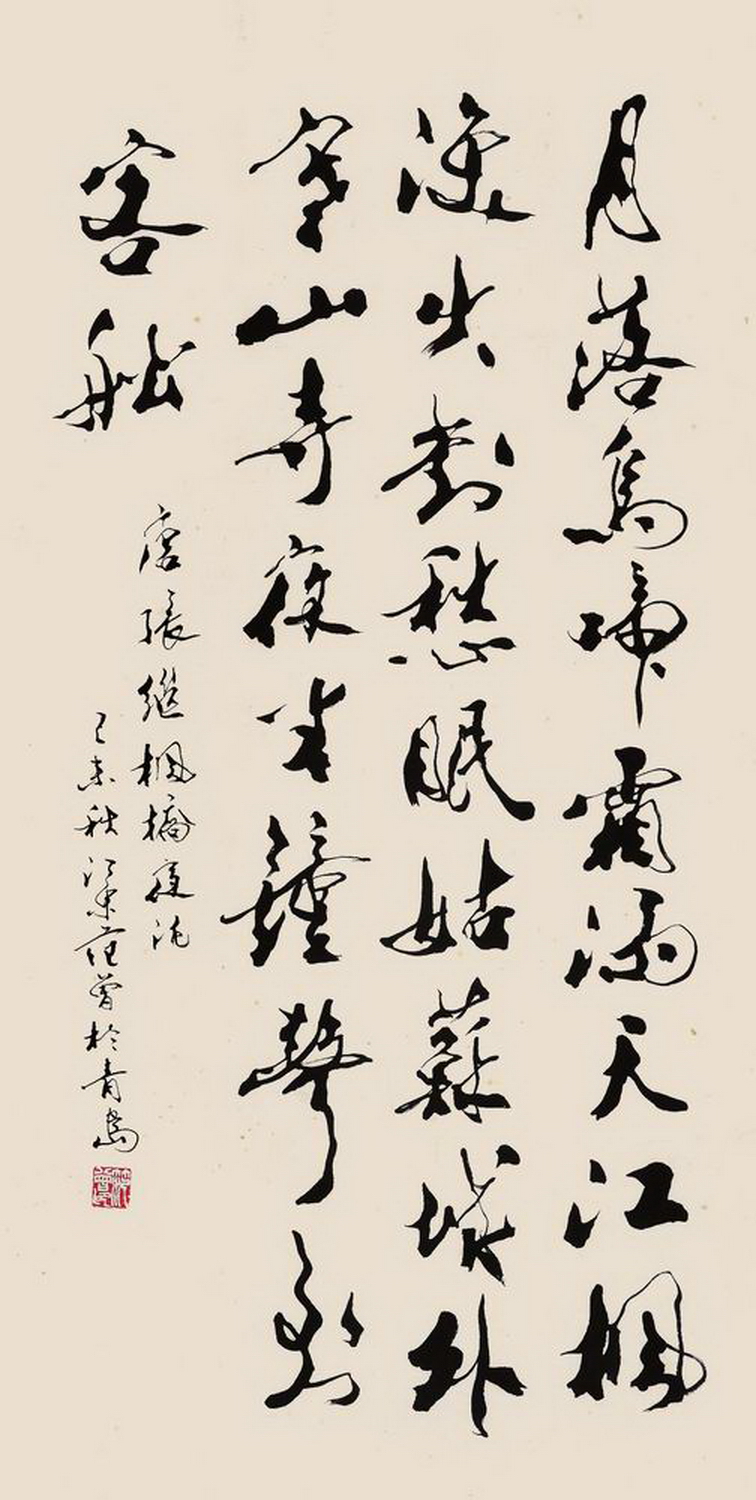 月落烏啼霜滿天江楓
漁火對愁眠姑蘇城外
寒山寺夜半鐘聲到
客船
唐張繼楓橋夜泊
己未秋江東范曾於青島
范曾